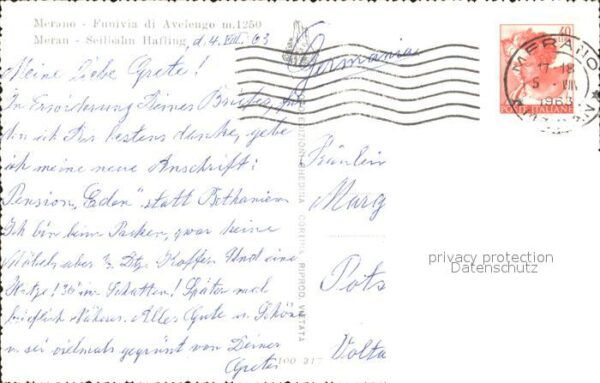 Merano - Funivia di Avelengo m.1250
Meran - Seilbahn Hafling
d. 4. VIII. 63
Meine Liebe Grete!
In Erwiderung Deines Briefes, für
den ich Dir bestens danke, gebe
ich meine neue Anschrift:
Pension "Eden" statt Bethanien
Ich bin beim Packen, zwar keine
Möbel, aber ½ Dtz. Koffer. Und eine
Hitze! 36° im Schatten! Später mal
brieflich Näheres. Alles Gute u. Schöne
u. sei vielmals gegrüsst von Deiner
Grete
Germania
MERANO
17-18
5 VIII
1963
40
POSTE ITALIANE
CORTINA RIPROD. VIETATA
Fräulein
Marg
Pots
Volta
100 217
privacy protection
Datenschutz